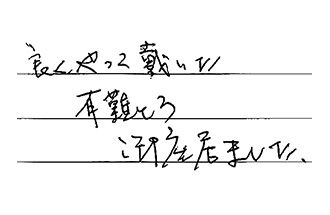 良くやって戴いた
有難とう
御座居ました。